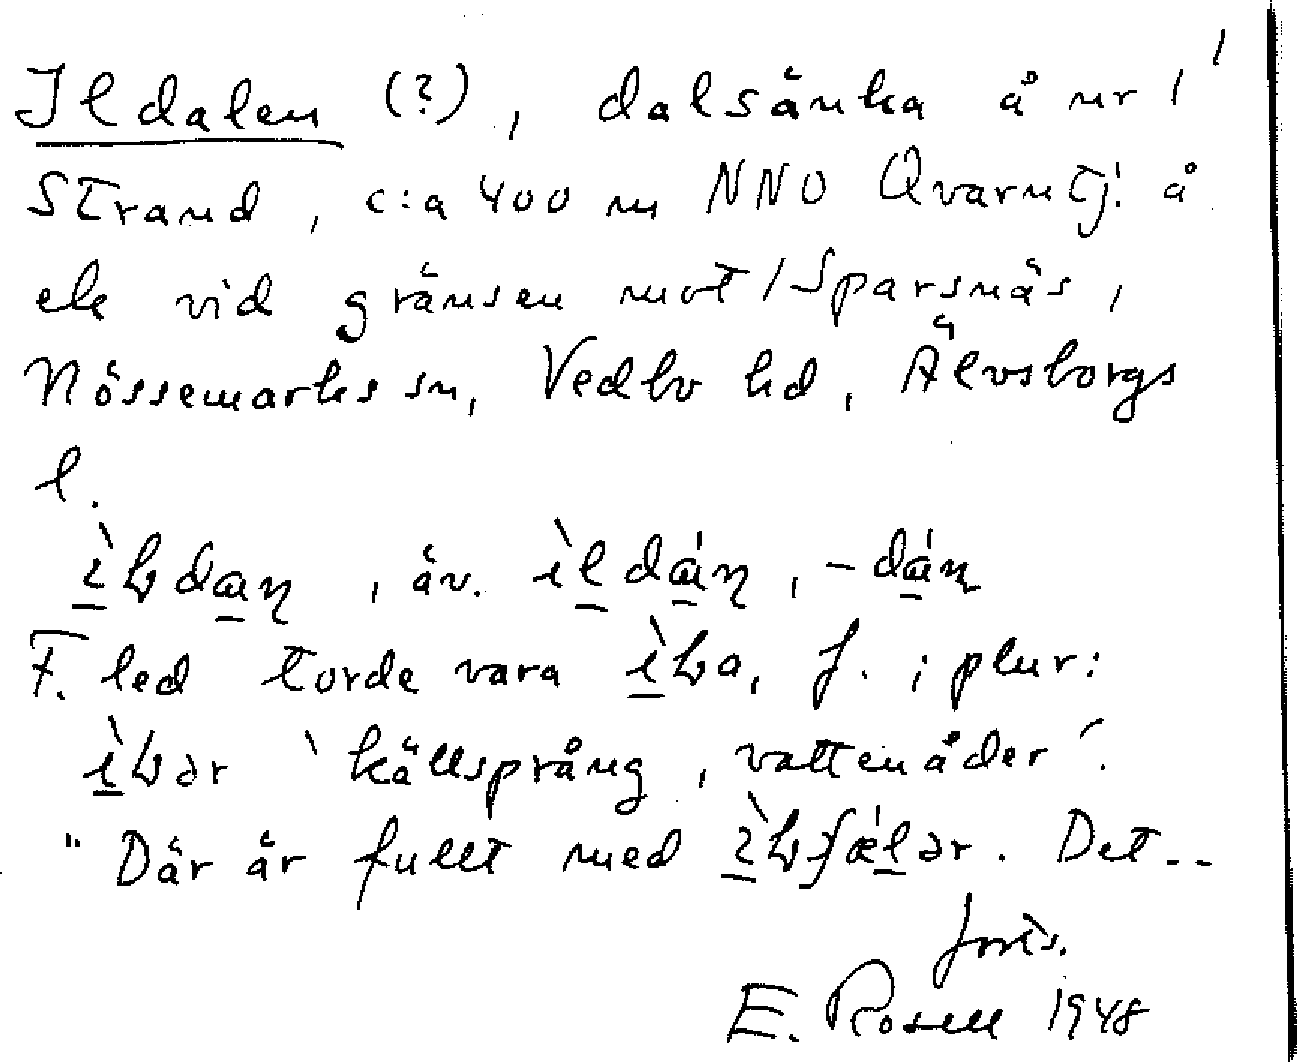 1
Ildalen (?), dalsänka å nr 1
Strand, c:a 400 m NNO Qvarntj. å
ek vid gränsen mot 1 Sparsnäs,
Nössemarks sn, Vedbo hd, Älvsborgs
l.
, äv. ìldáņ, -dáņ
F. led torde vara , f. ; plur:
`källsprång, vattenåder´.
"Där är fullt med . Det--
forts.
E. Rosell 1948